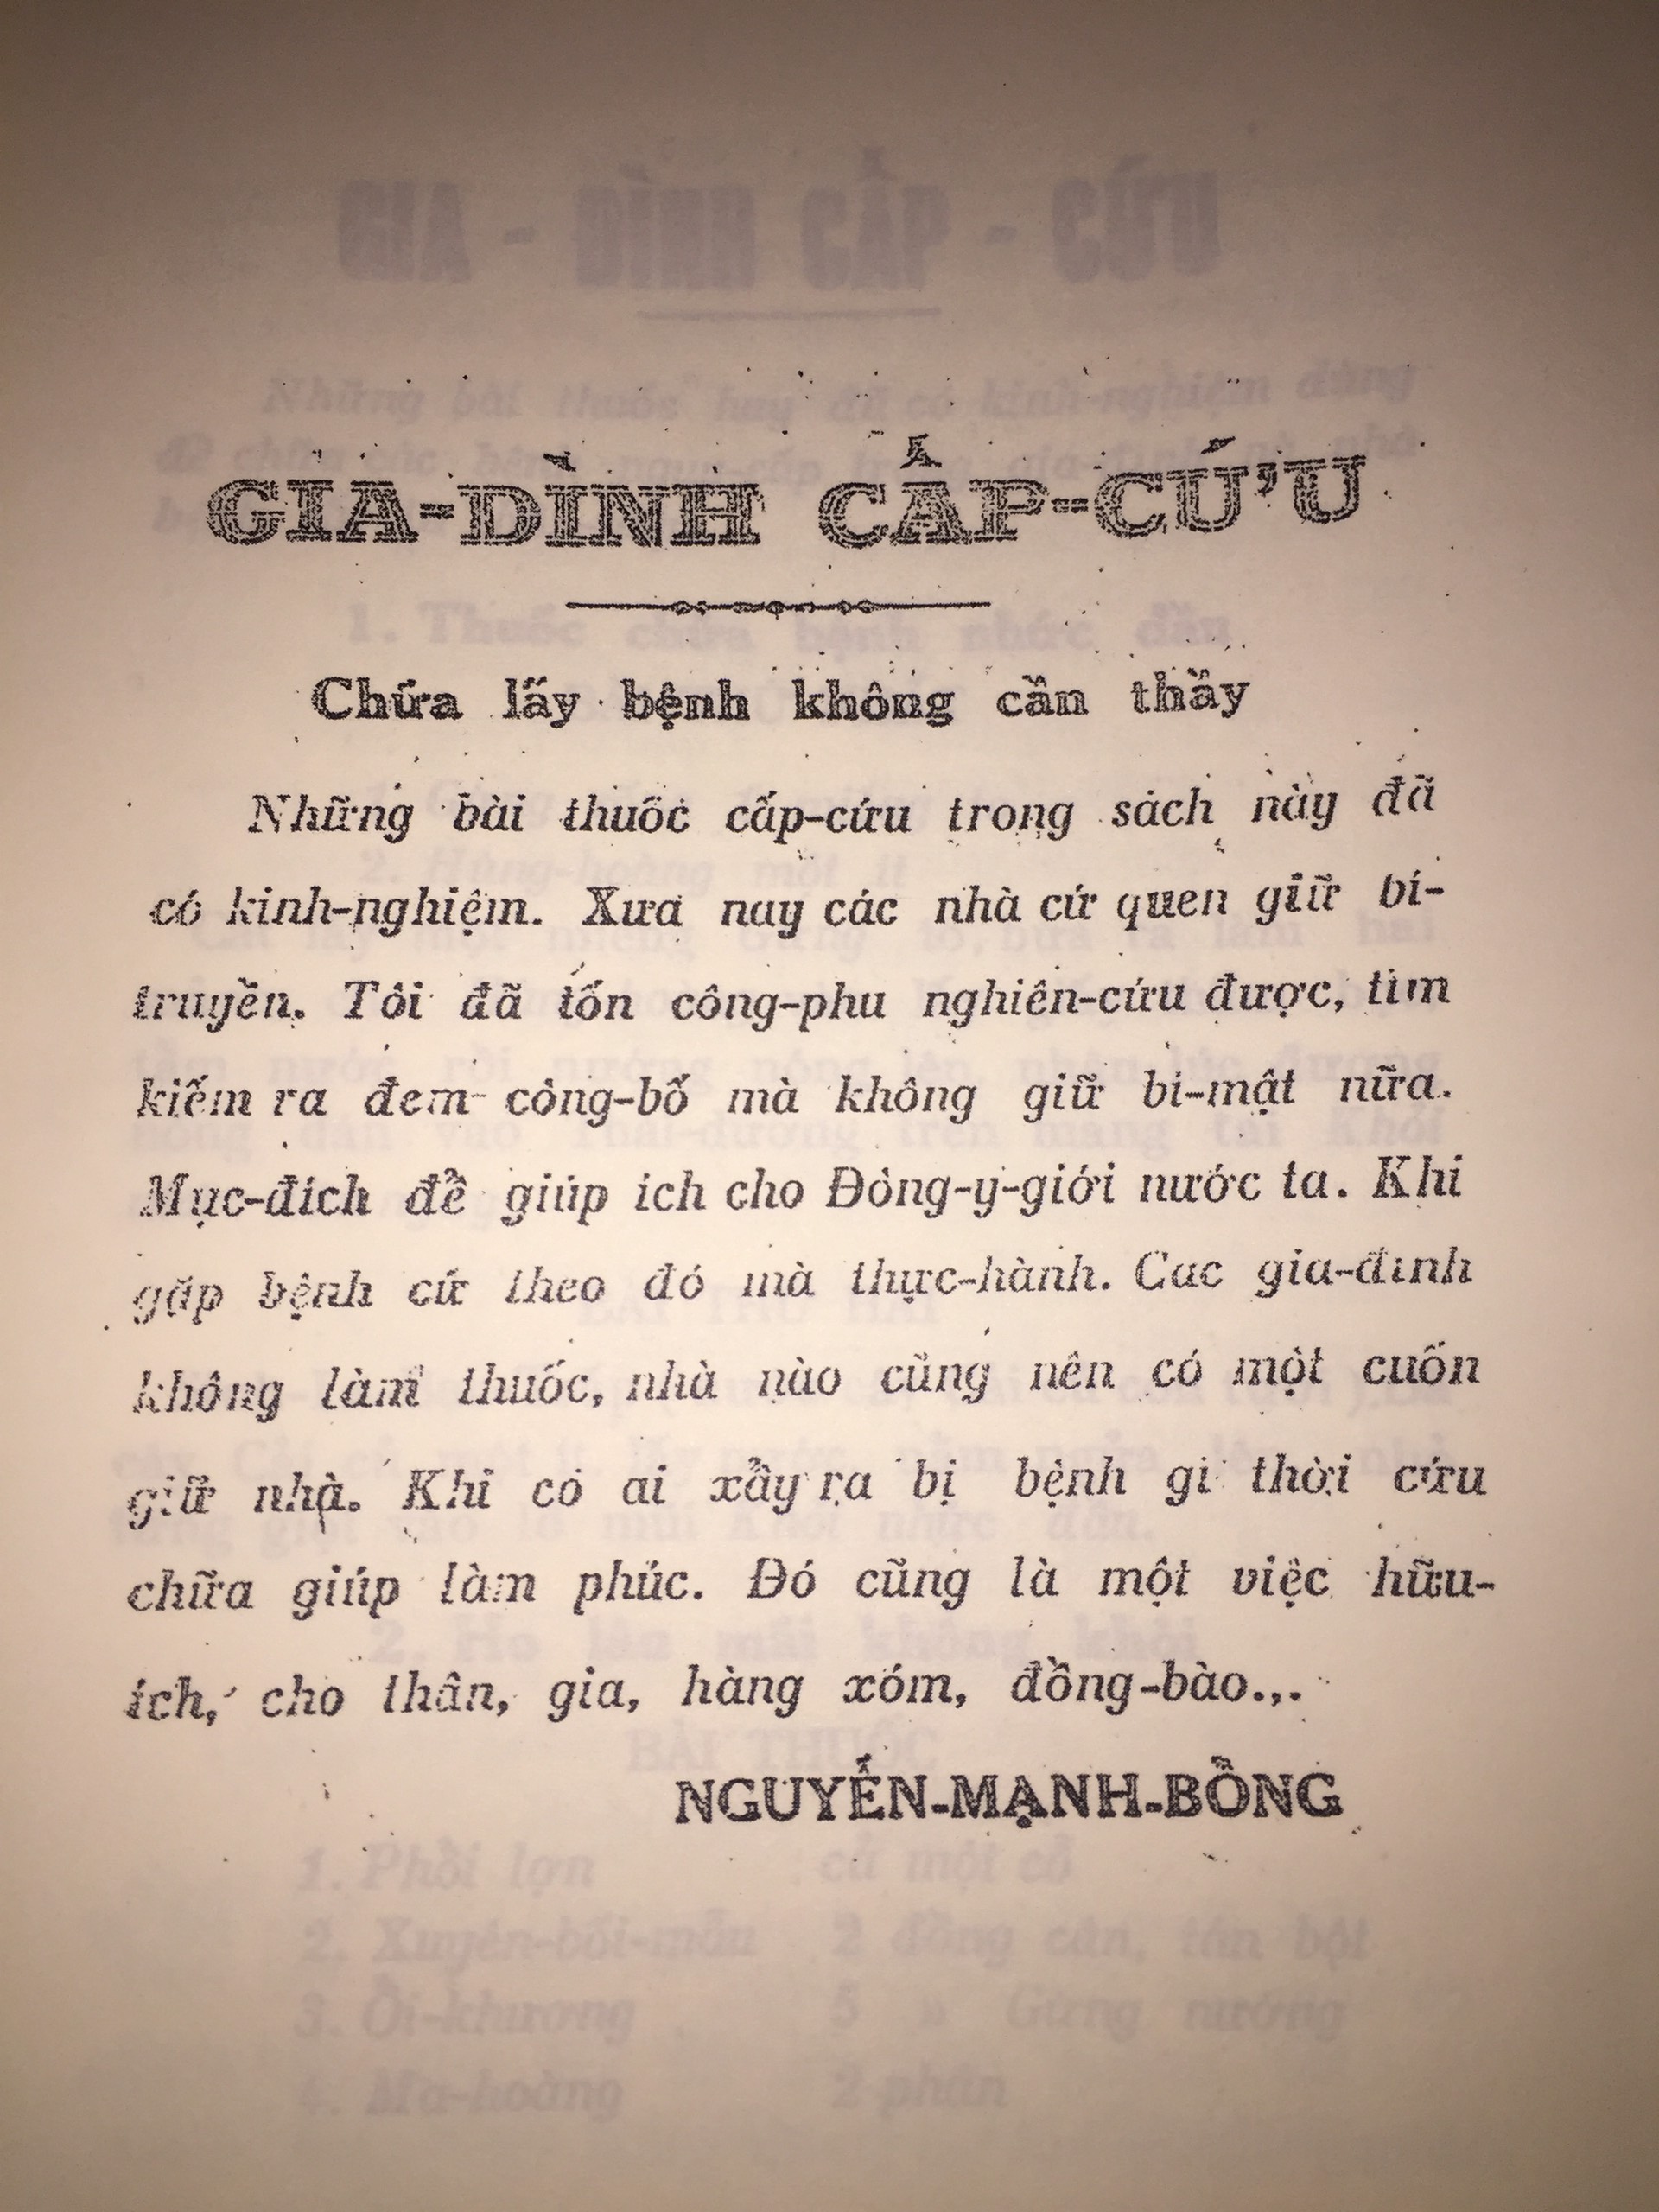 GIA-ĐÌNH CẤP-CỨU
Chữa lấy bệnh không cần thầy
Những bài thuốc cấp-cứu trong sách này đã
có kinh-nghiệm. Xưa nay các nhà cứ quen giữ bí-
truyền. Tôi đã tốn công-phu nghiên-cứu được, tìm
kiếm ra đem công-bố mà không giữ bí-mật nữa.
Mục-đích để giúp ích cho Đông-y-giới nước ta. Khi
gặp bệnh cứ theo đó mà thực-hành. Các gia-đình
không làm thuốc, nhà nào cũng nên có một cuốn
giữ nhà. Khi có ai xẩy ra bị bệnh gì thời cứu
chữa giúp làm phúc. Đó cũng là một việc hữu-
ích, cho thân, gia, hàng xóm, đồng-bào...
NGUYỄN-MẠNH-BỒNG